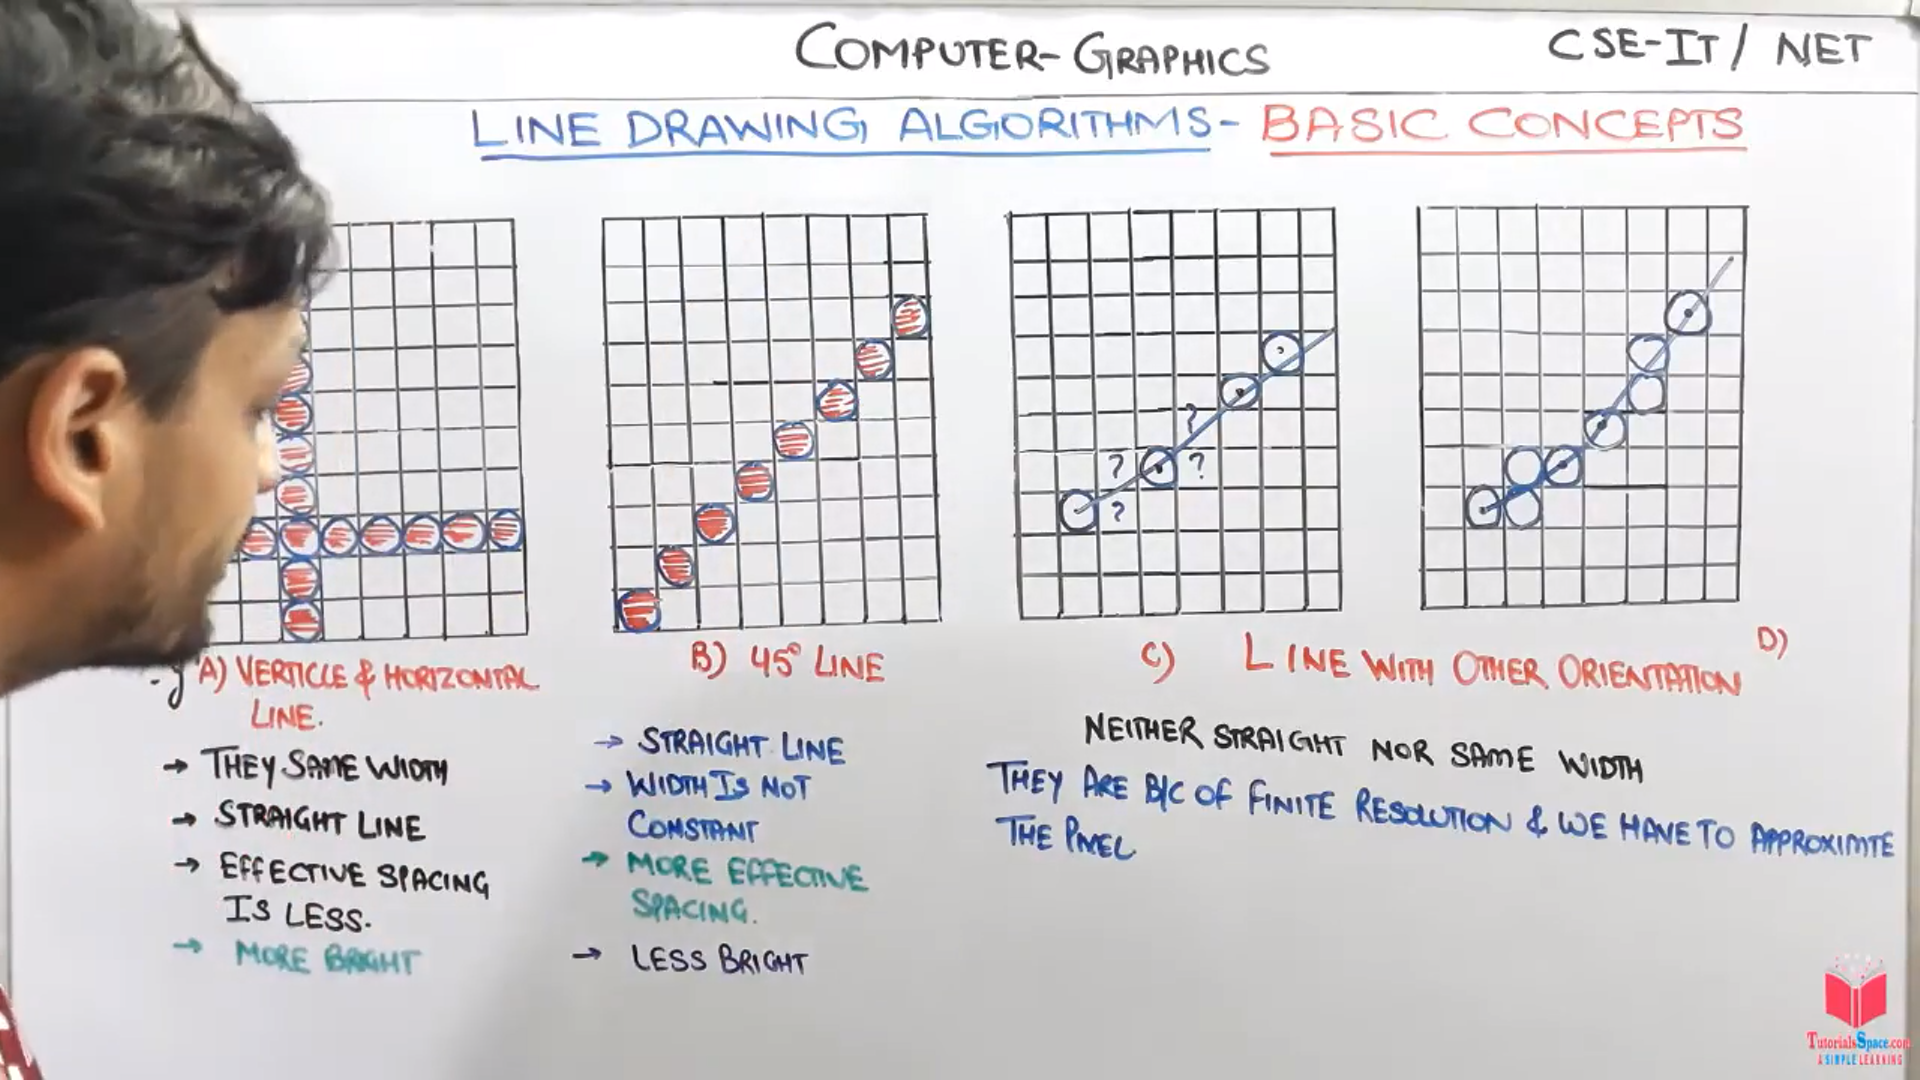 COMPUTER-GRAPHICS
CSE-IT / NET
LINE DRAWING ALGORITHMS- BASIC CONCEPTS
? ? ? ?
A) VERTICLE & HORIZONTAL
LINE.
→ THEY SAME WIDTH
→ STRAIGHT LINE
→ EFFECTIVE SPACING
IS LESS.
→ MORE BRIGHT
B) 45° LINE
→ STRAIGHT LINE
→ WIDTH IS NOT
CONSTANT
→ MORE EFFECTIVE
SPACING.
→ LESS BRIGHT
C) LINE WITH OTHER ORIENTATION D)
NEITHER STRAIGHT NOR SAME WIDTH
THEY ARE B/C OF FINITE RESOLUTION & WE HAVE TO APPROXIMTE
THE PIXEL
TutorialsSpace.com
A SIMPLE LEARNING